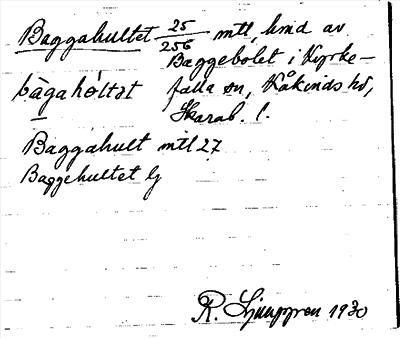 Baggahultet 25/256 mtl, hmd av
Baggebolet i Kyrke-
bàgahòltət falla sn, Kåkinds hd,
Skarab. l.
Baggahult mtl 27
Baggehultet lj
R. Ljunggren 1930